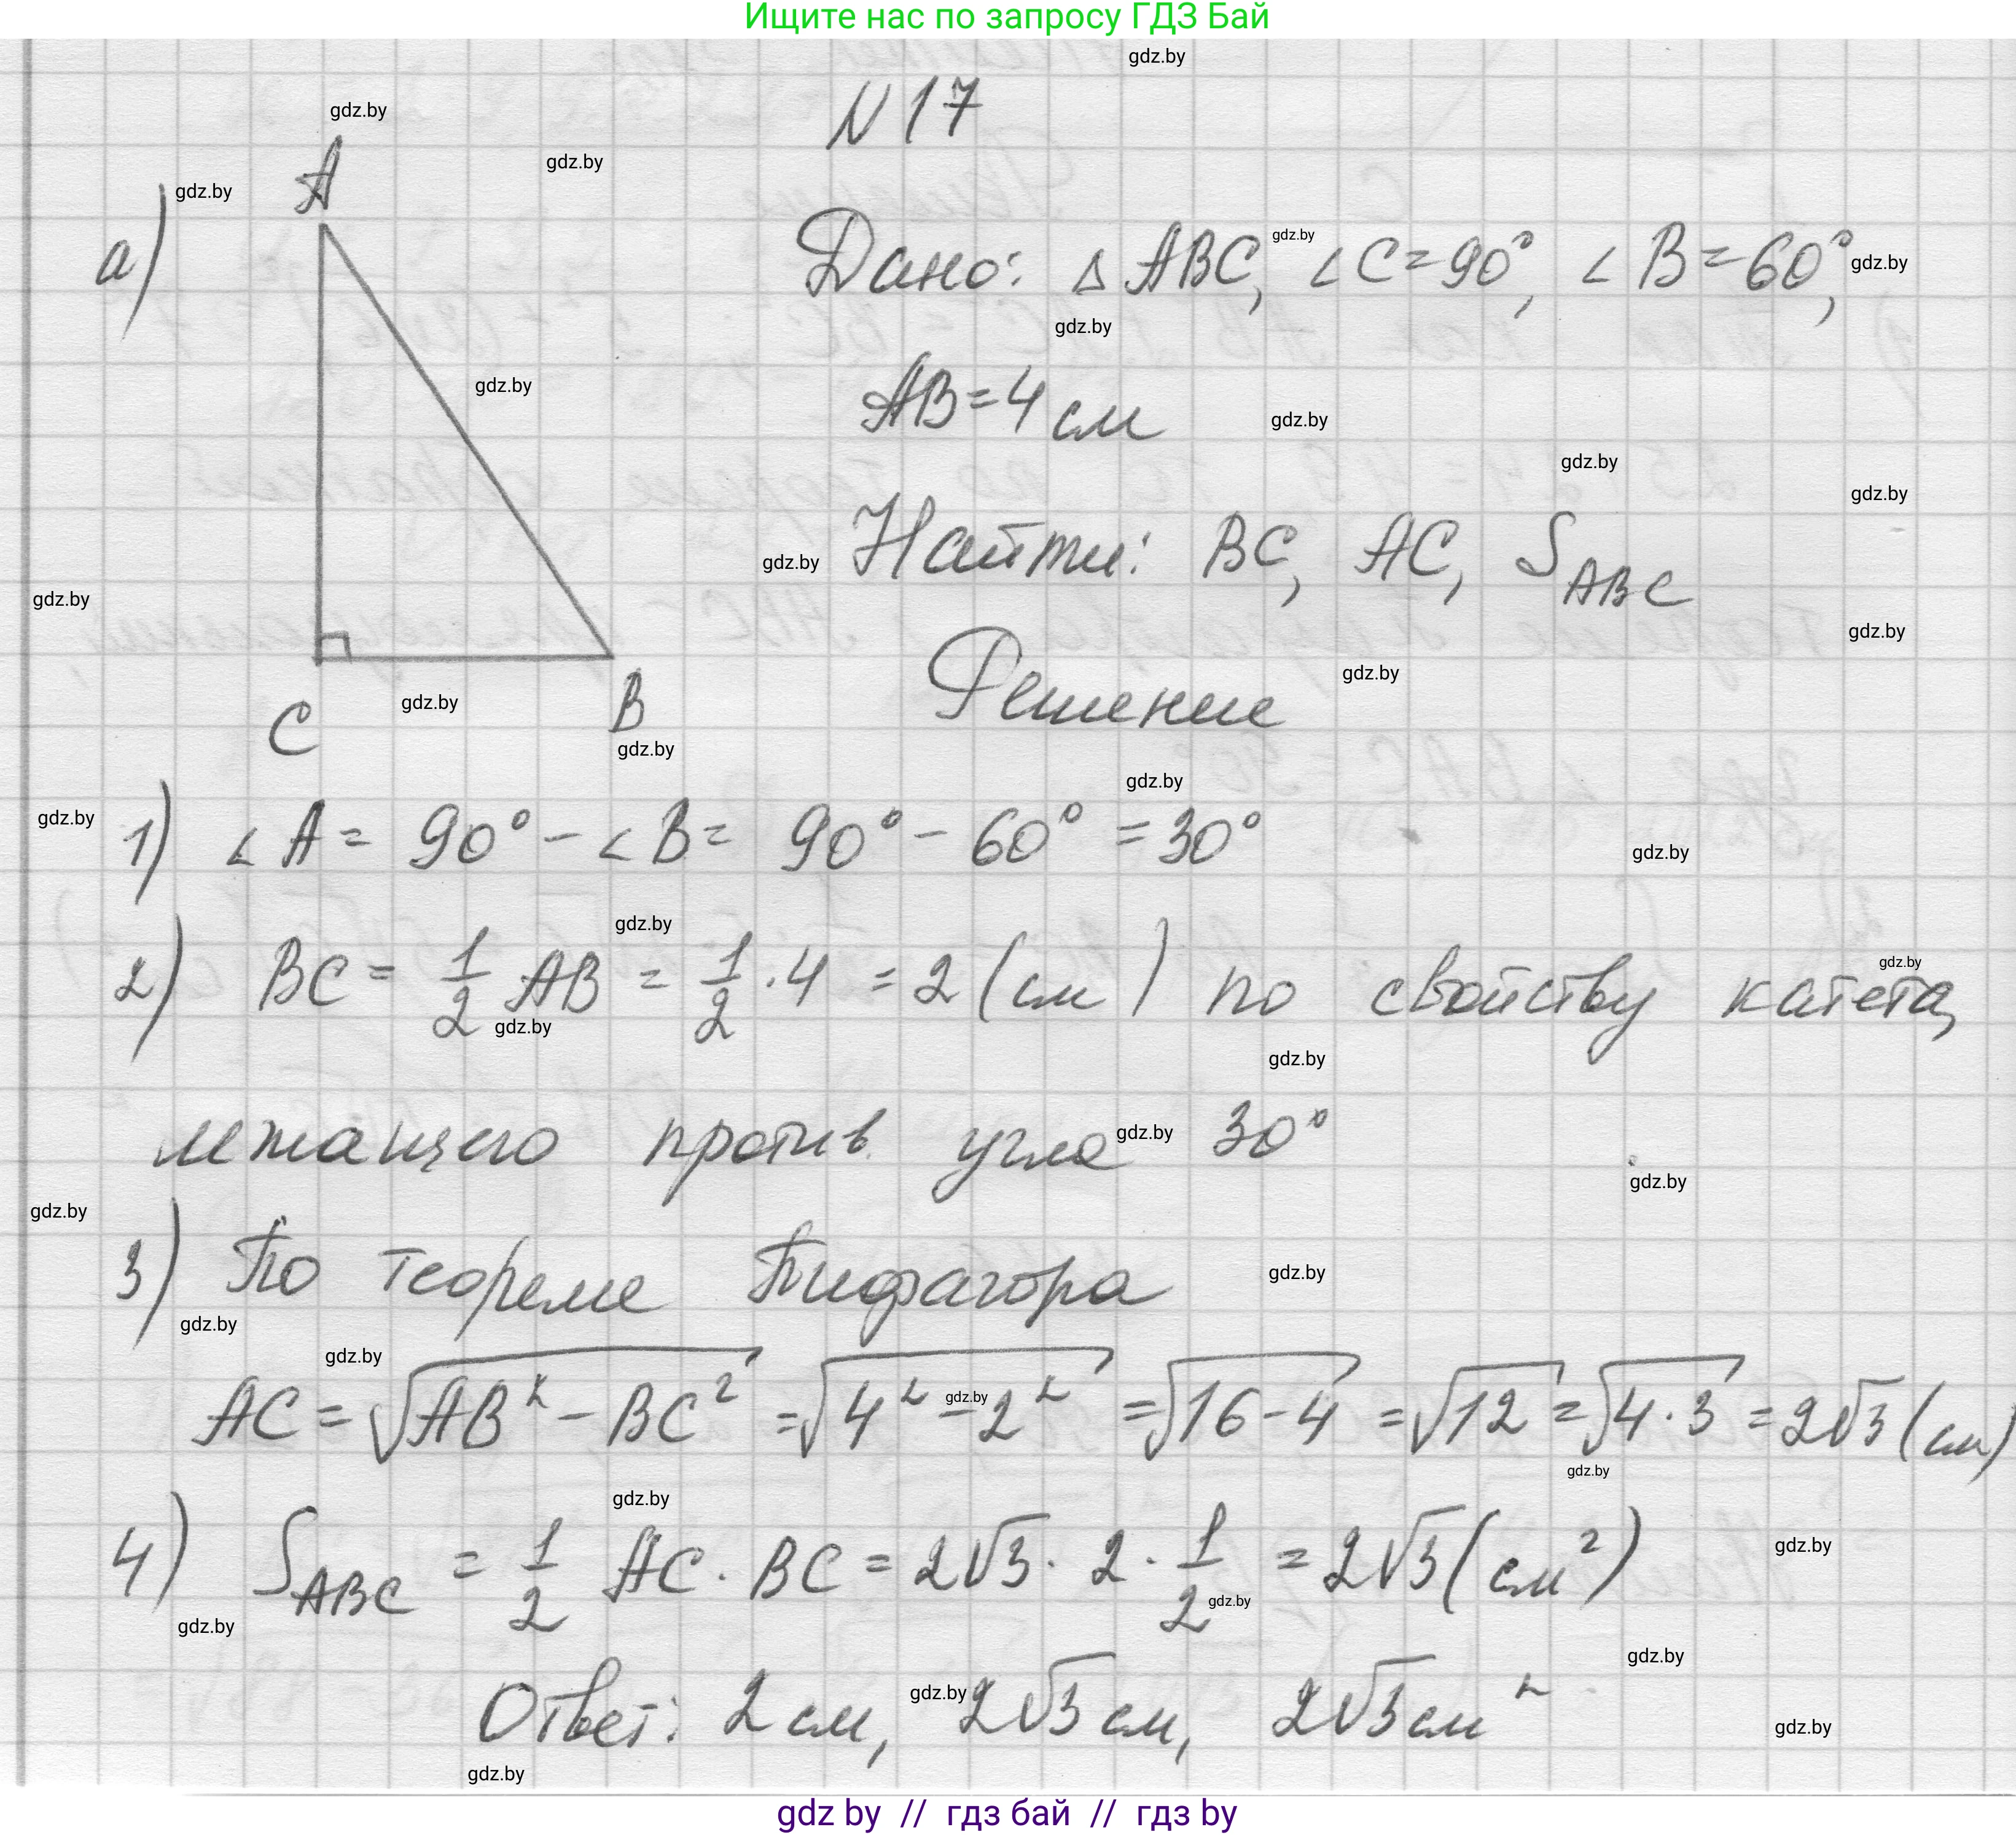 Ищите нас по запросу ГДЗ Бай
N17
а)
A
C
B
Дано: △ ABC, ∠C=90°, ∠B=60°,
AB=4 см
Найти: BC, AC, S_ABC
Решение
1) ∠A = 90° - ∠B = 90° - 60° = 30°
2) BC = 1/2 AB = 1/2 · 4 = 2 (см) по свойству катета,
лежащего против угла 30°
3) По теореме Пифагора
AC = √(AB² - BC²) = √(4² - 2²) = √(16-4) = √12 = √(4·3) = 2√3 (см)
4) S_ABC = 1/2 AC · BC = 2√3 · 2 · 1/2 = 2√3 (см²)
Ответ: 2 см, 2√3 см, 2√3 см²
gdz by // гдз бай // гдз by